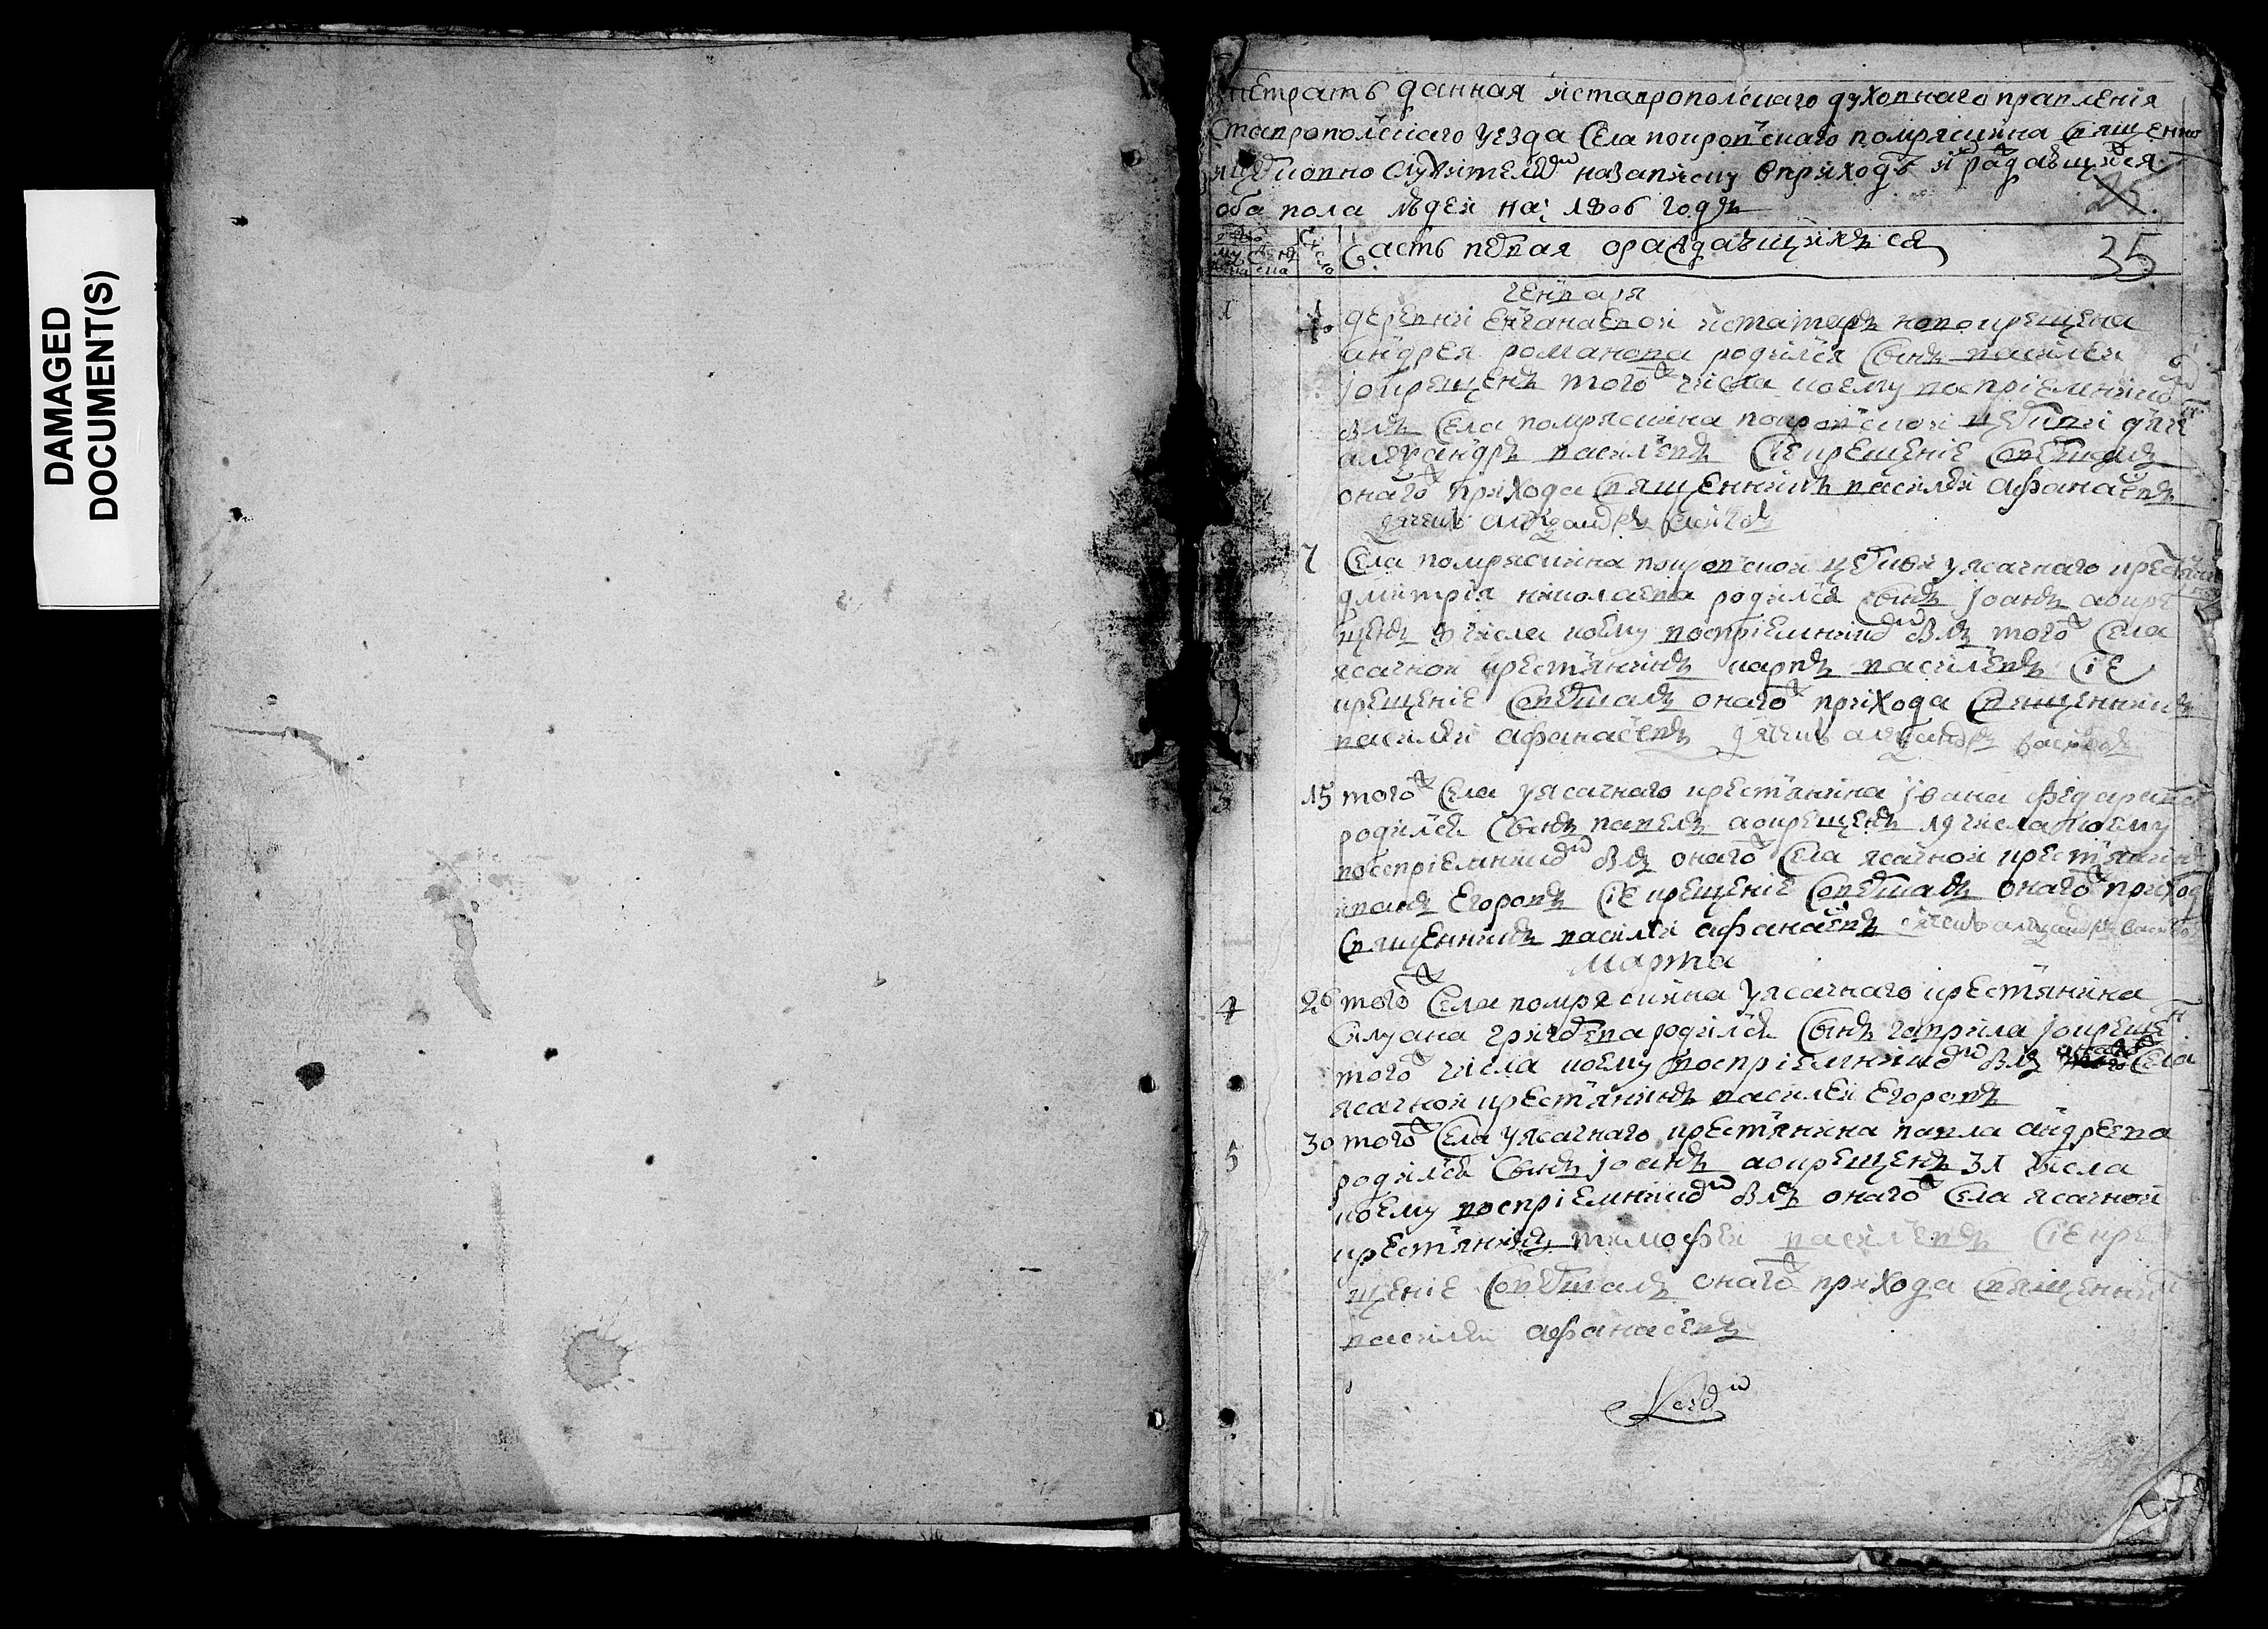 DAMAGED
DOCUMENT(S)
тетрать данная изставрополскаго духовнаго правленія
Ставрополскаго уезда Села покровскаго помряскина Священно
ицерковно служителемъназаписку оприходѣ ирождавшихся
оба пола лѣдей на: 1806 годъ
25.
число Часть первая ораждавшихъся
35
генваря
1 1 деревни енганаевой изтатаръ новокрещена
андрея романова родился Сынъ василей
iокрещенъ тогожъ числа коему воспріемникомъ
былъ Села помряскина покровской церкви дячекъ
александръ василевъ Сіе крещеніе Совершалъ
онагожъ прихода Священникъ василей афанасевъ
дячекъ александръ
7 Села помряскина покровской церкви уясачнаго
дмитрія николаева родился Сынъ iоанъ аокре
щенъ 8 числа коему воспріемникомъ былъ тогожъ Села
ясачной крестьянинъ карпъ василевъ Сіе
крещеніе Совершалъ онагожъ прихода Священникъ
василей афанасевъ дячекъ александръ василевъ
15 тогожъ Села уясачнаго крестьянина iвана
родился Сынъ павелъ аокрещенъ 19 числа коему
воспріемникомъ былъ онагожъ Села ясачной крестьянинъ
иванъ Егоровъ Сіе крещеніе Совершалъ онагожъ приход
Священникъ василей афанасевъ дячекъ александръ василевъ
марта
4 26 тогожъ Села помряскина уясачнаго крестьянина
Силуана григорева родился Сынъ гаврила iокрещен
тогожъ числа коему воспріемникомъ былъ онагожъ Села
ясачной крестьянинъ василей Егоровъ
5 30 тогожъ Села уясачнаго крестьянина павла андреева
родился Сынъ iоанъ аокрещенъ 31 числа
коему воспріемникомъ былъ онагожъ Села ясачной
крестьянинъ тимофей василевъ Сіе кре
щеніе Совершалъ онагожъ прихода Священникъ
василей афанасевъ